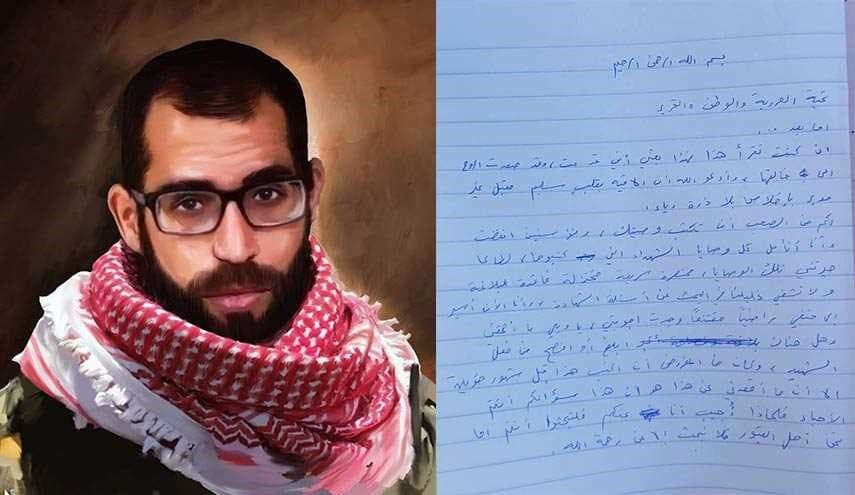 بسم الله الرحمن الرحيم
تحية العروبة والوطن والتحرير
اما بعد ...
ان كنت تقرأ هذا فهذا يعني أني قد مت، وقد صعدت الروح
الى خالقها، وأدعو الله أن ألاقيه بقلب سليم مقبل غير
مدبر بإخلاص بلا ذرة رياء.
لكم من الصعب أن تكتب وصيتك، ومنذ سنين انقضت
وأنا أتأمل كل وصايا الشهداء التي كتبوها، لطالما
حيرتني تلك الوصايا، مختصرة سريعة مختزلة فاقدة للبلاغة
ولا تشفي غليلنا في البحث عن أسئلة الشهادة، وأنا الآن أسير
الى حتفي راضيا مقتنعا وجدت اجوبتي، يا ويلي ما احمقني
وهل هناك ابلغ أو افصح من فعل
الشهيد، وكان من المفروض أن اكتب هذا قبل شهور طويلة
الا أن ما أقعدني عن هذا هو ان هذا سؤالكم انتم
الأحياء فلماذا أجيب أنا عنكم فلتبحثوا انتم اما
نحن أهل القبور فلا نبحث الا عن رحمة الله.